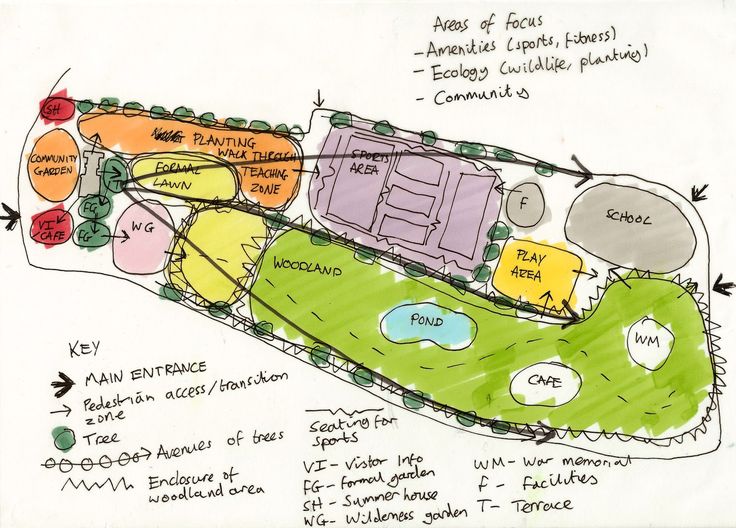 Areas of focus
- Amenities (sports, fitness)
- Ecology (wildlife, planting)
- Community
SH
PLANTING
WALK THROUGH
TEACHING
ZONE
COMMUNITY
GARDEN
FORMAL
LAWN
SPORTS
AREA
F
SCHOOL
FG
VI
/CAFE
FG
WG
WOODLAND
PLAY
AREA
POND
WM
CAFE
KEY
MAIN ENTRANCE
Pedestrian access/transition
zone
Tree
Avenues of trees
Enclosure of
woodland area
Seating for
sports
VI - Vistor Info
FG - Formal garden
SH - Summer house
WG - Wilderness garden
WM - War memorial
F - Facilities
T - Terrace